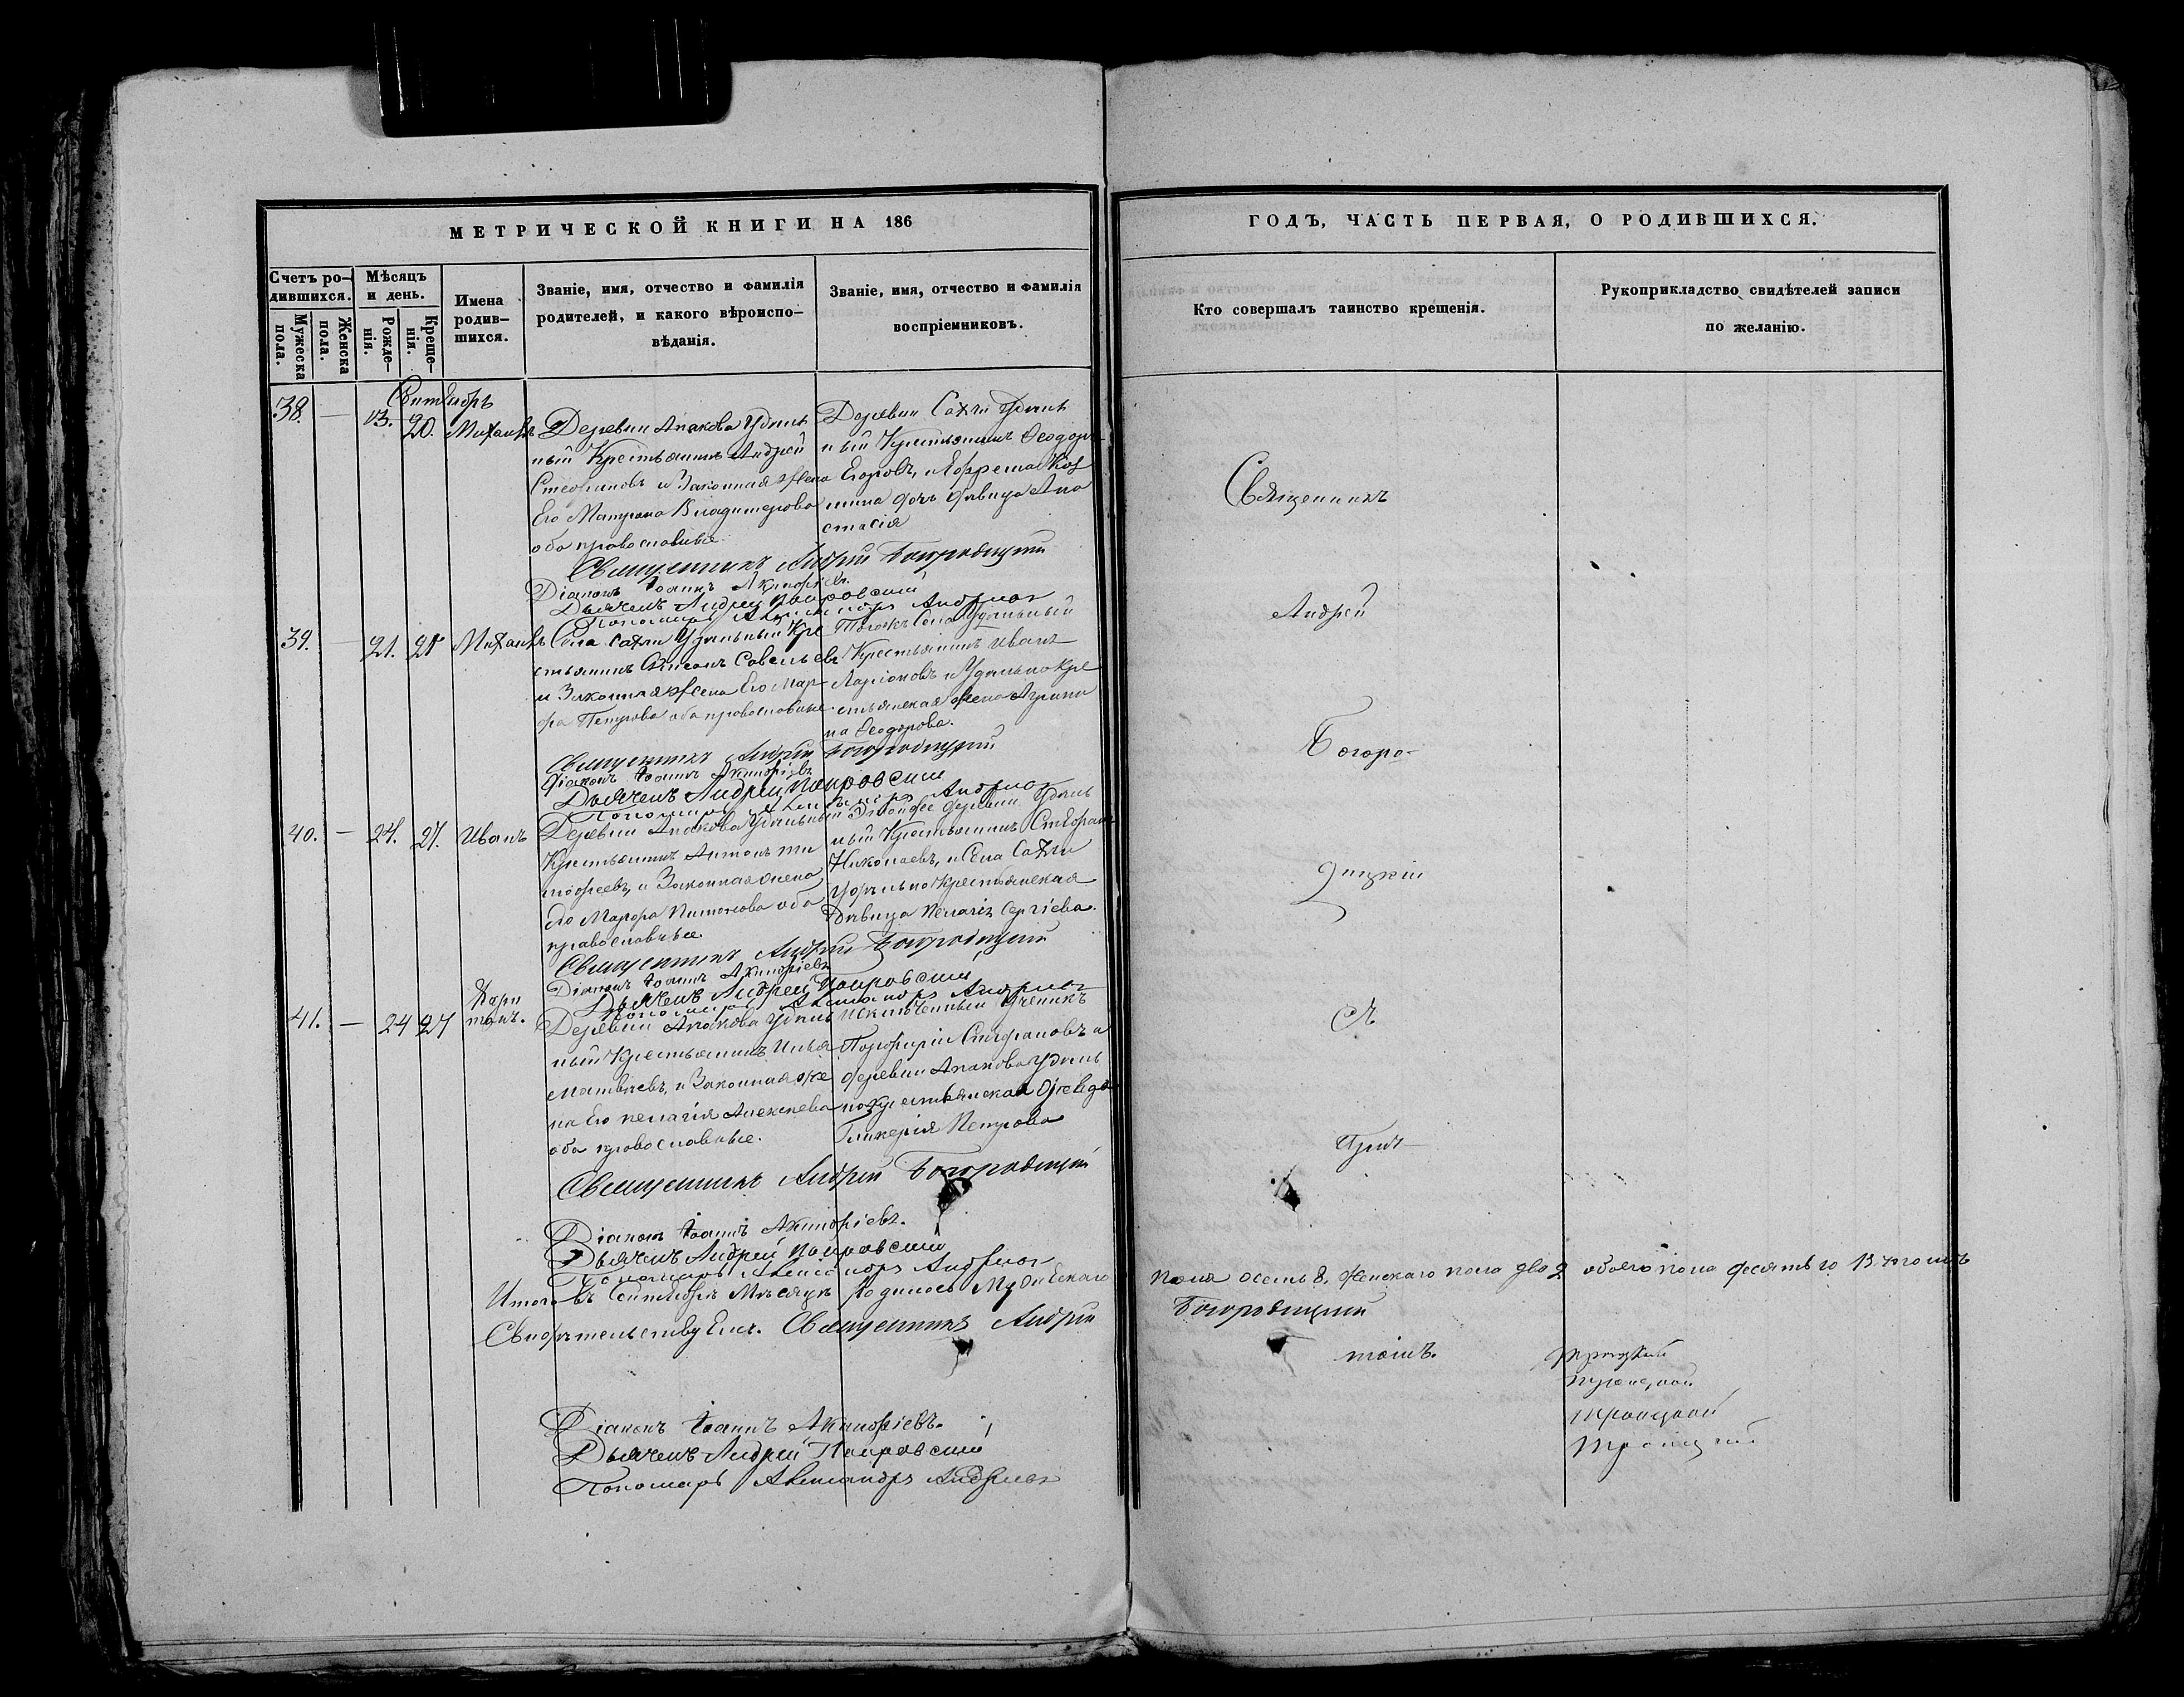 МЕТРИЧЕСКОЙ КНИГИ НА 186
Счетъ ро-
дившихся.
Мужеска
пола.
Женска
пола.
Мѣсяцъ
и день.
Рожде-
нія.
Креще-
нія.
Имена
родив-
шихся.
Званіе, имя, отчество и фамилія
родителей, и какого вѣроиспо-
вѣданія.
Званіе, имя, отчество и фамилія
воспріемниковъ.
Сентябрь
38. — 13. 20. Михаилъ
Деревни Апакова Удѣль
ный Крестьянинъ Андрей
Стефановъ и Законная жена
Его Матрона Владимерова
оба православные
Деревни Сахчи Удѣль
ный Крестьянинъ Феодоръ
Егоровъ, и
мина дочь дѣвица Ана
стасія
Священникъ Андрей Богородицкій
Діаконъ Іоаннъ Акинфіевъ.
Дьячекъ Андрей Покровскій
Пономарь Александръ
39. — 21. Михаилъ
Села Сахчи Удѣльный Кре
стьянинъ Савельевъ
и Законная жена Его Мар
фа Петрова оба православные
Тогожъ Села Удѣльный
Крестьянинъ Иванъ
Ларіоновъ и Удѣльно Кре
стьянская жена Агрипи
на Феодорова.
Священникъ Андрей Богородицкій
Діаконъ Іоаннъ Акинфіевъ
Дьячекъ Андрей Покровскій
Пономарь Александръ
40. — 24. 27. Иванъ
Деревни Апакова Удѣльный
Крестьянинъ Антонъ Ти
мофеевъ, и Законная жена
Его Марфа оба
православные.
Этойже деревни Удѣль
ный Крестьянинъ Стефанъ
Николаевъ, и Села Сахчи
Удѣльно Крестьянская
Дѣвица Пелагія Сергіева.
Священникъ Андрей Богородицкій
Діаконъ Іоаннъ Акинфіевъ
Дьячекъ Андрей Покровскій
Пономарь Александръ
41. — 24 27 Хари
тонъ.
Деревни Апакова Удѣль
ный Крестьянинъ Илья
Матвѣевъ, и Законная же
на Его Пелагія Алексѣева
оба православные.
Исключенный Ученикъ
Порфирій Стефановъ и
деревни Апакова Удѣль
но Крестьянская
Гликерія Петрова
Священникъ Андрей Богородицкій
Діаконъ Іоаннъ Акинфіевъ.
Дьячекъ Андрей Покровскій
Пономарь Александръ
Итого въ Сентябрѣ Мѣсяцѣ родилось Мужескаго
Свидѣтельствуемъ. Священникъ Андрей
Діаконъ Іоаннъ Акинфіевъ.
Дьячекъ Андрей Покровскій
Пономарь Александръ
ГОДЪ, ЧАСТЬ ПЕРВАЯ, О РОДИВШИХСЯ.
Кто совершалъ таинство крещенія.
Рукоприкладство свидѣтелей записи
по желанію.
Священникъ
Андрей
Богоро-
дицкій
съ
Прич-
пола осемь 8, женскаго пола два 2 обоего пола десять 10 В томъ
Богородицкій
томъ.